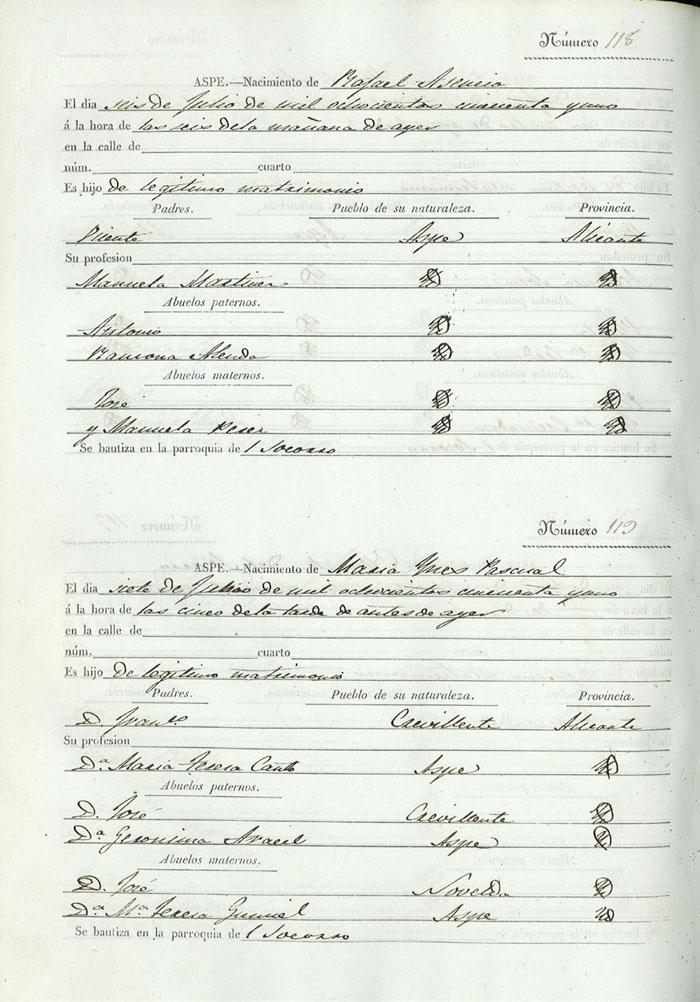 Número 118
ASPE.—Nacimiento de Rafael Asencio
El dia seis de Julio de mil ochocientos cincuenta y uno
á la hora de las seis de la mañana de ayer
en la calle de
núm. cuarto
Es hijo de legitimo matrimonio
Padres. Pueblo de su naturaleza. Provincia.
Vicente Aspe Alicante
Su profesion
Manuela Martinez
Abuelos paternos.
Antonio
Ramona Alenda
Abuelos maternos.
José
y Manuela Perez
Se bautiza en la parroquia de l Socorro
Número 119
ASPE.—Nacimiento de Maria Ynes Pascual
El dia siete de Julio de mil ochocientos cincuenta y uno
á la hora de las cinco de la tarde de antes de ayer
en la calle de
núm. cuarto
Es hijo de legitimo matrimonio
Padres. Pueblo de su naturaleza. Provincia.
D. Franco Crevillente Alicante
Su profesion
Da Maria Teresa Canto Aspe
Abuelos paternos.
D. José Crevillente
Da Geronima Aracil Aspe
Abuelos maternos.
D. José Novelda
Da Ma Teresa Aspe
Se bautiza en la parroquia de l Socorro